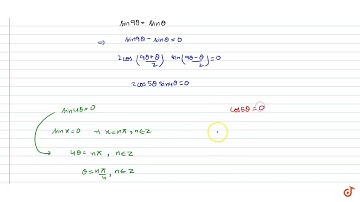 sin9θ = sinθ
⇒ sin9θ - sinθ = 0
2cos (9θ+θ/2) sin(9θ-θ/2) = 0
2cos5θ sin4θ = 0
sin4θ = 0
sinx = 0 → x = nπ, n∈Z
4θ = nπ, n∈Z
θ = nπ/4, n∈Z
cos5θ = 0